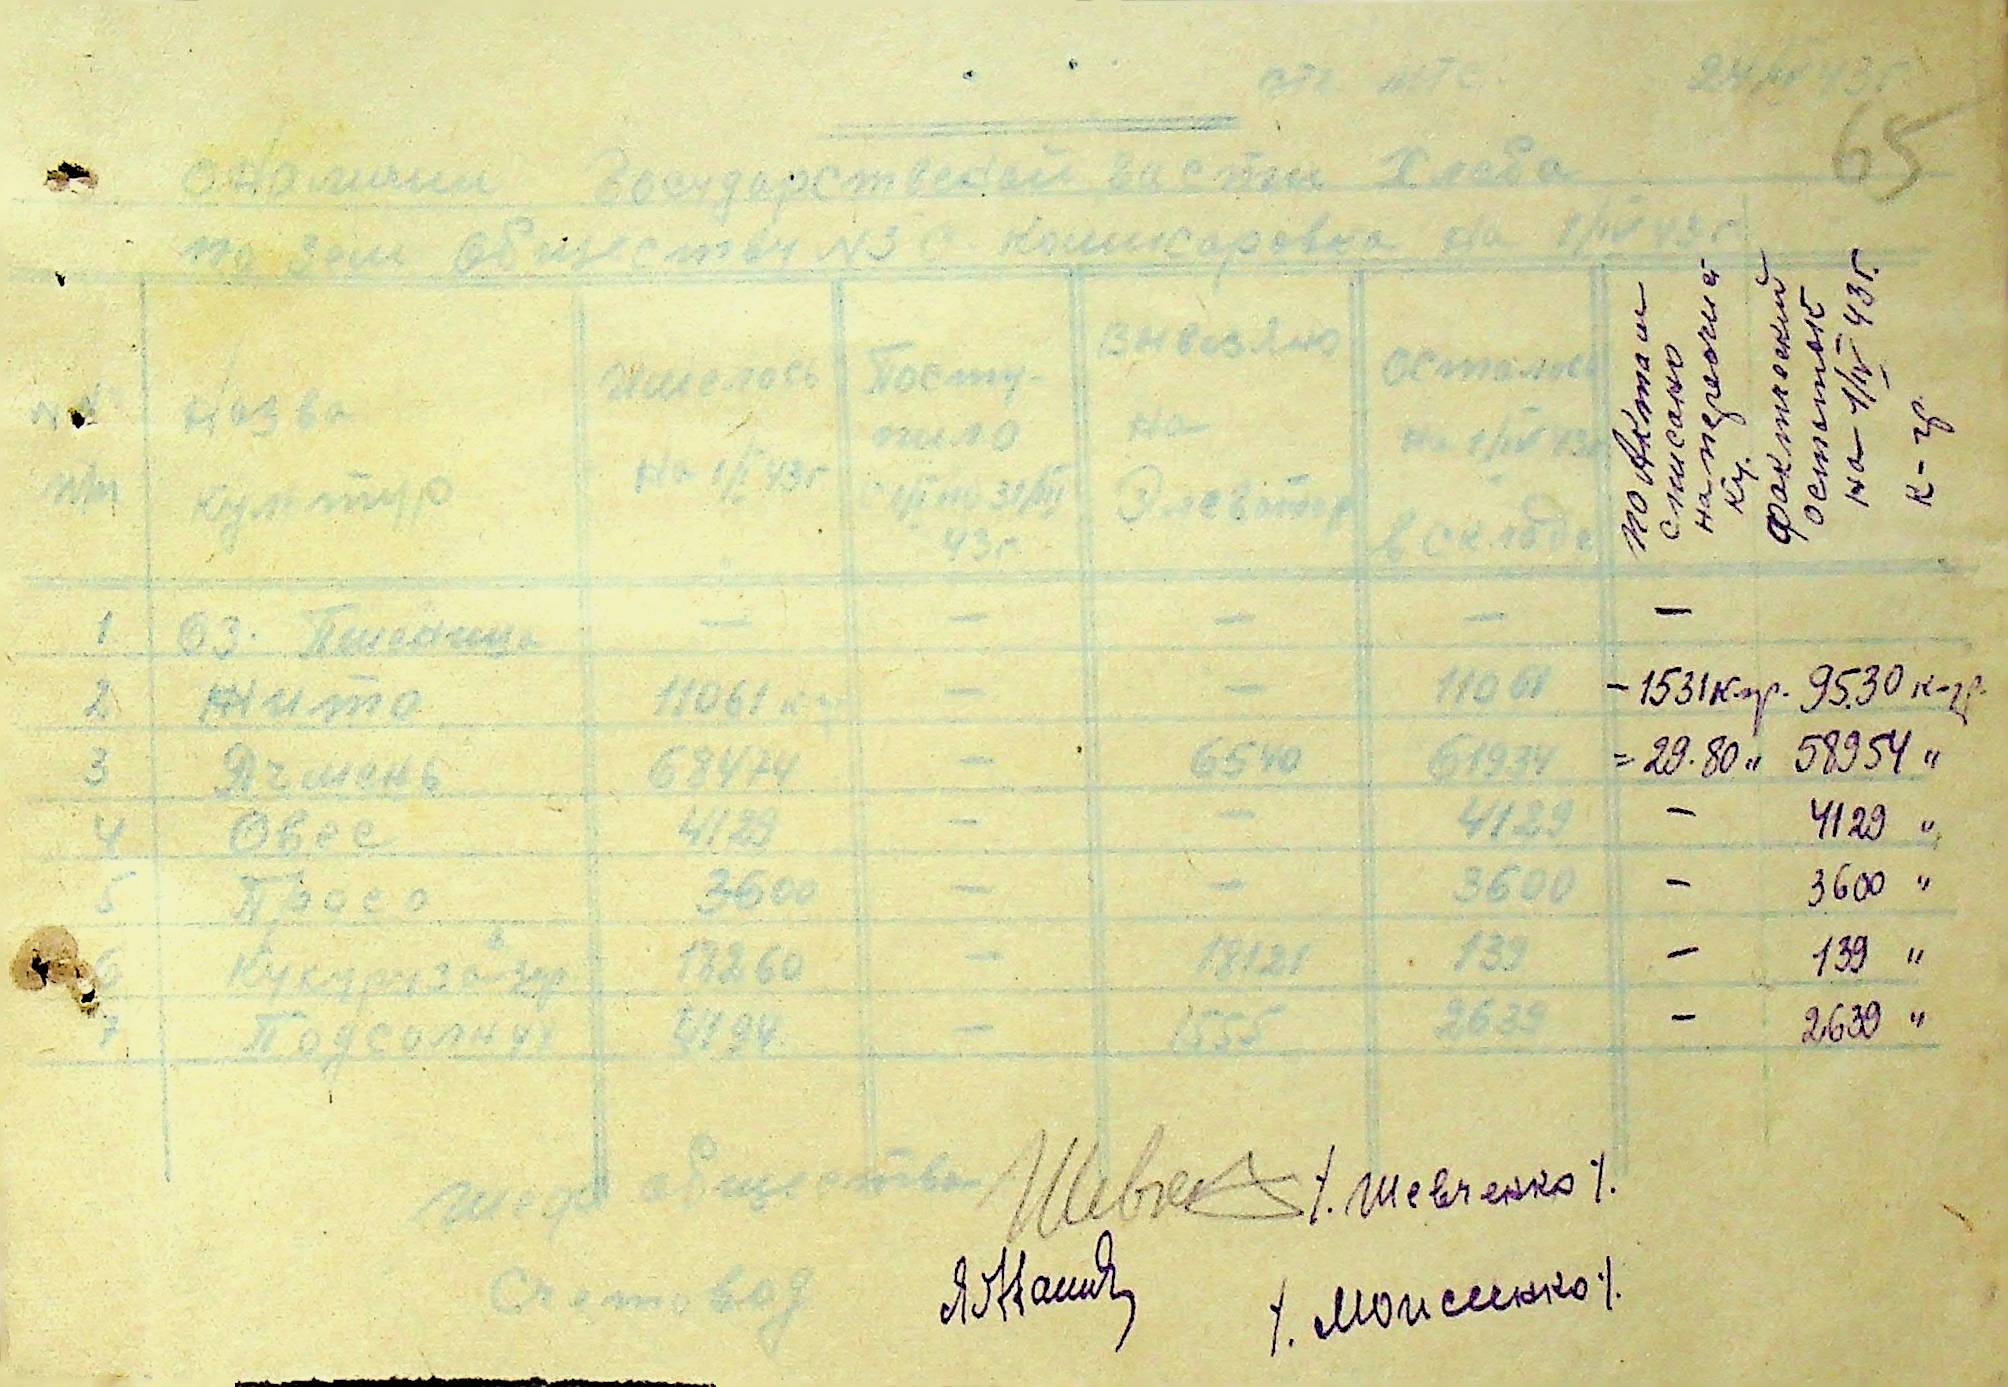 МТС. 24/IV 43 г.
65
О наличии Государственной части Хлеба
по Зем Обществу N3 С Кошкаровка на 1/IV 43 г
NN п/п
Назва культур
Имелось на 1/I 43 г
Поступило с 1/II по 31/III 43 г
Вывезяно на Элеватор
Осталось на 1/IV 43 г в складе
по Актам списано
Фактический остаток на 1/IV 43 г. к-гр
1 Оз. Пшеница — — — — —
2 Жито 11061 кг — — 11061 – 1531 к-гр. 95.30 к-гр.
3 Ячмень 68474 — 6540 61934 = 29.80 " 58954 "
4 Овес 4129 — — 4129 — 4129 "
5 Просо 3600 — — 3600 — 3600 "
6 Кукуруза 18260 — 18121 139 — 139 "
7 Подсолнух 4194 — 1555 2639 — 2639 "
Шеф общества /. Шевченко /.
Счетовод /. Моисеенко /.